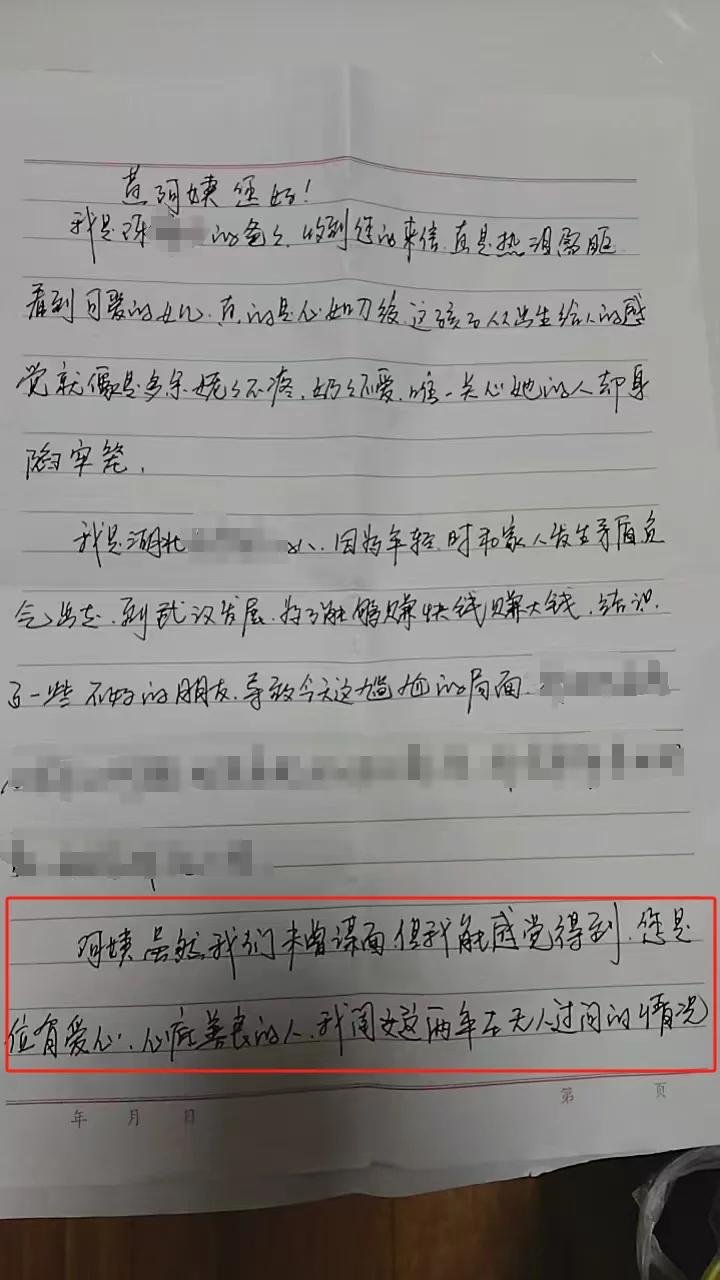 黄阿姨您好!
我是陈 的爸爸,收到您的来信,真是热泪盈眶
看到可爱的女儿,真的是心如刀绞,这孩子从出生给人的感
觉就像是多余,姥姥不疼,奶奶不爱,唯一关心她的人却身
陷牢笼,
我是湖北 人、因为年轻时和家人发生矛盾负
气出走,到武汉发展,为了能够赚快钱赚大钱,结识
了一些不好的朋友,导致今天这尴尬的局面
阿姨虽然我们未曾谋面但我能感觉得到,您是
位有爱心,心底善良的人,我闺女这两年在无人过问的情况
年 月 日
第 页